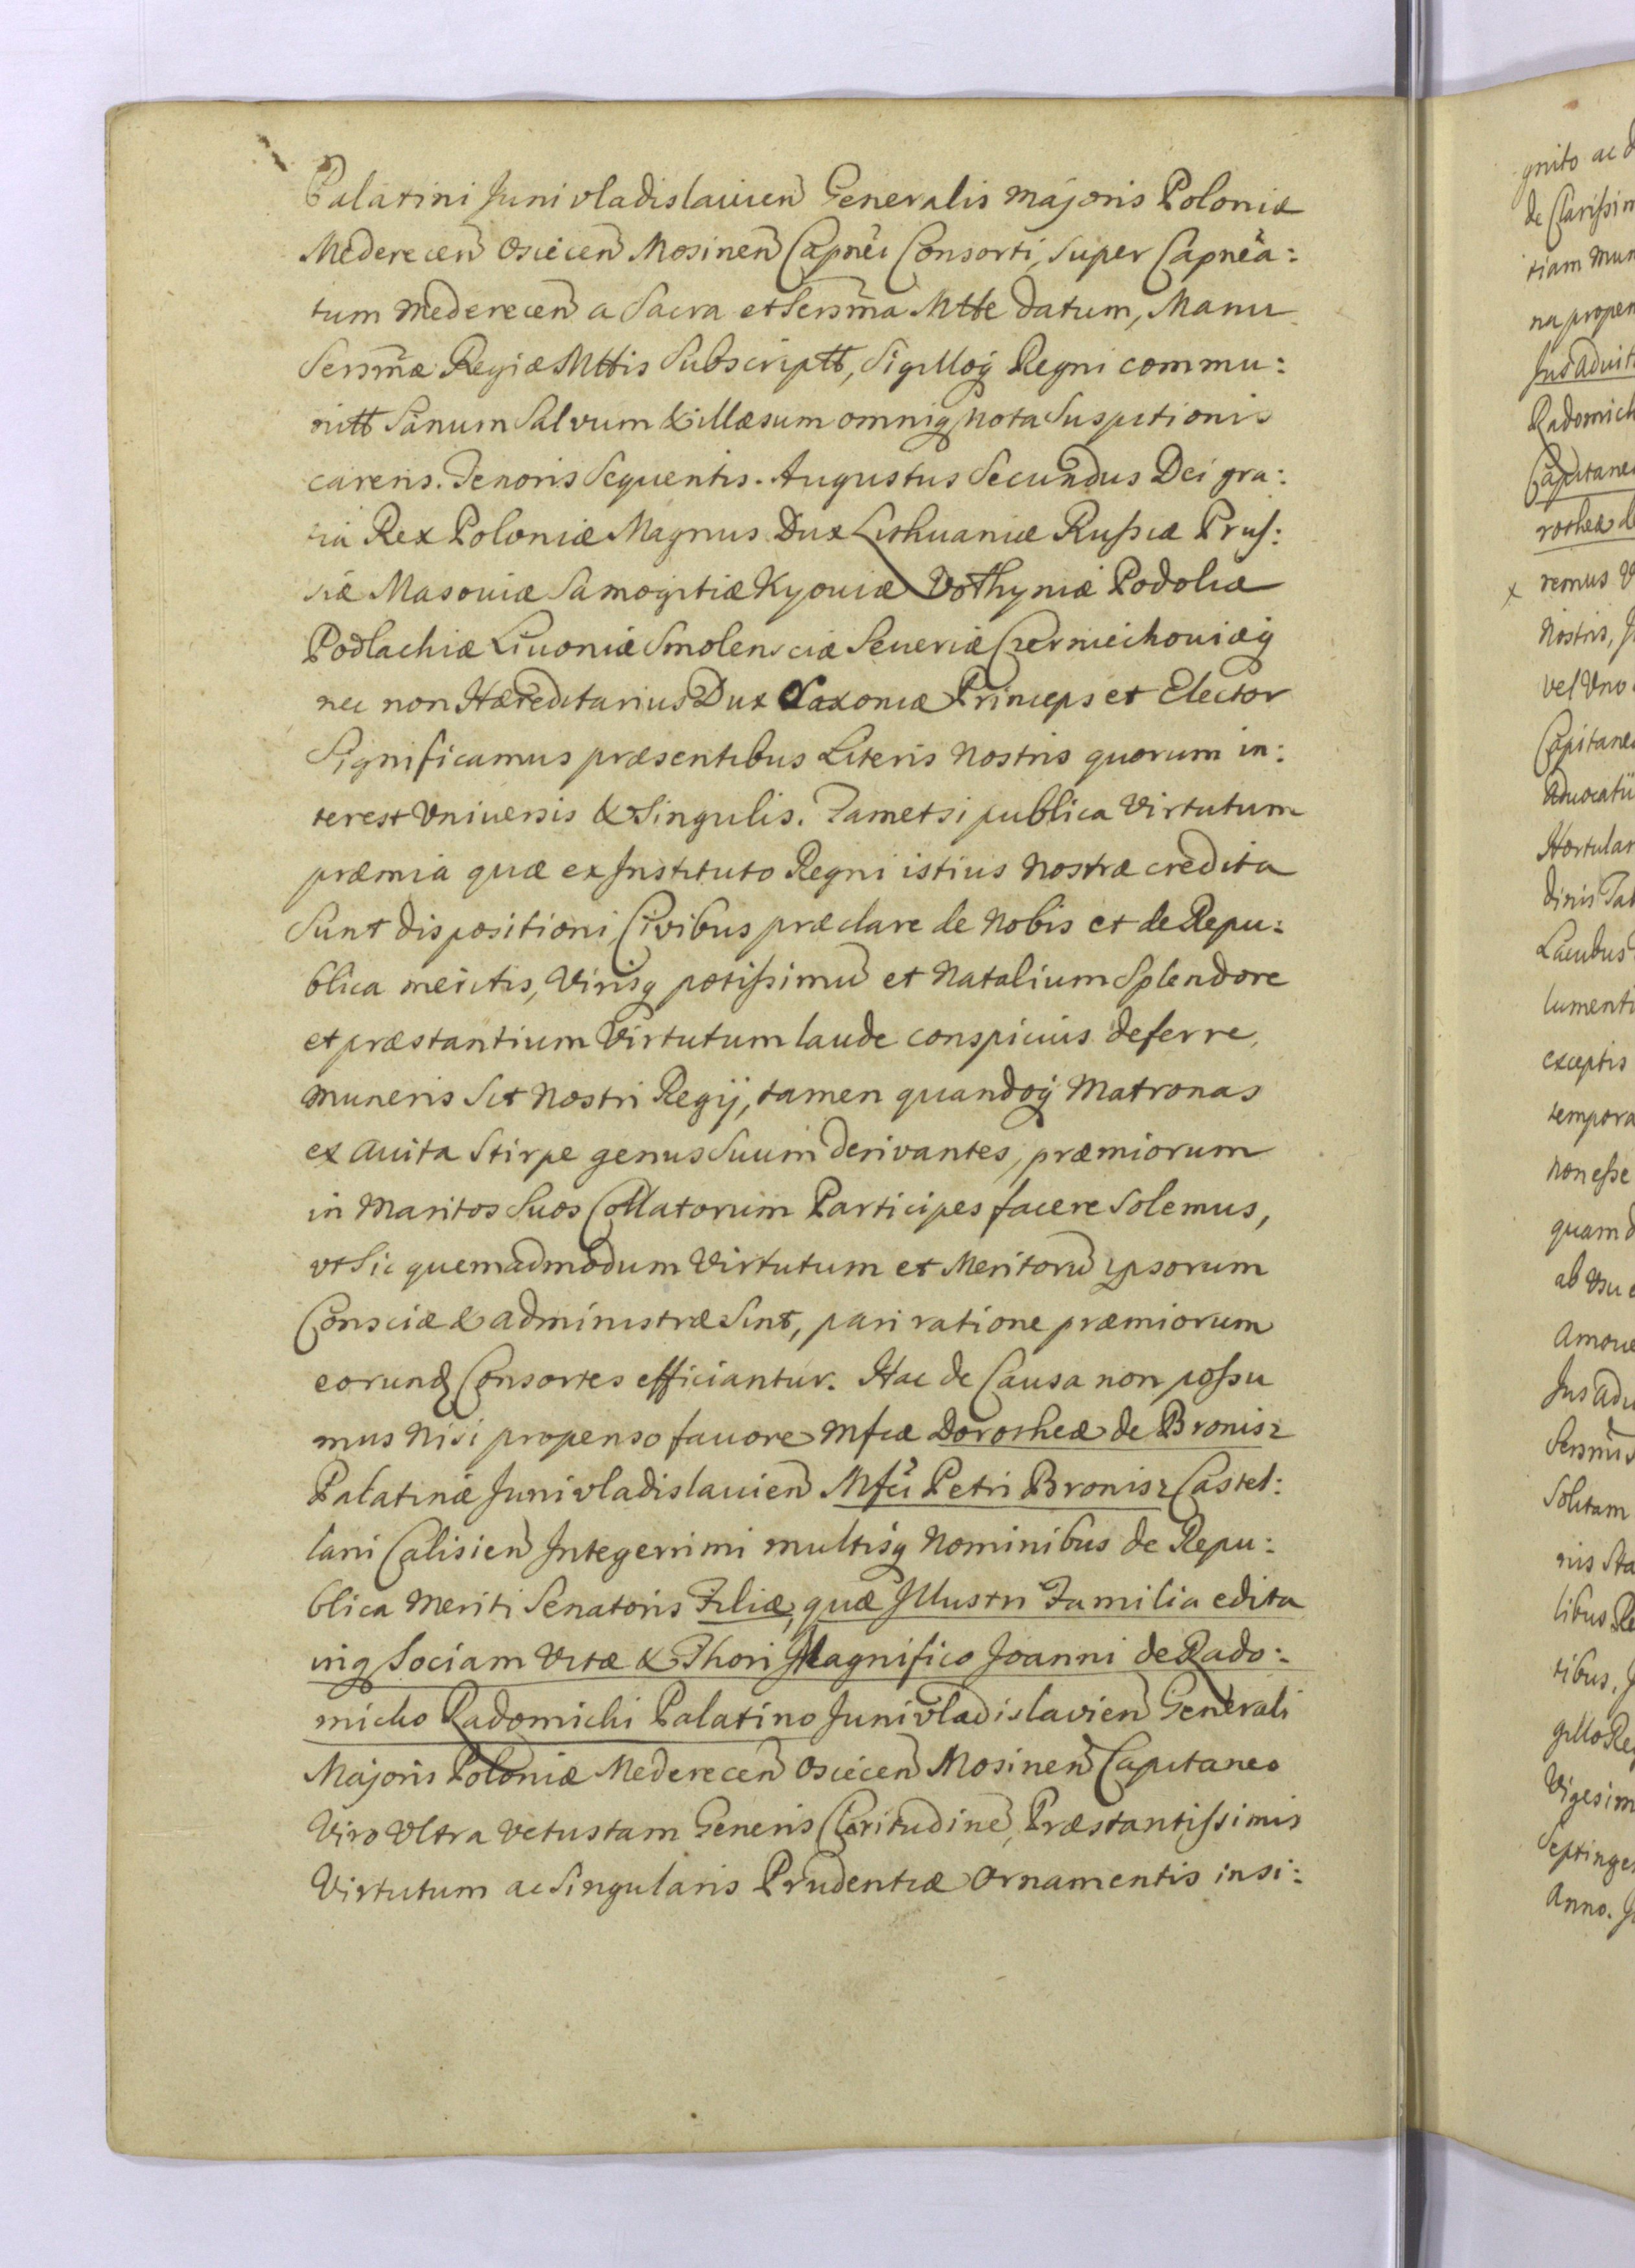 Palatini Junivladislavien̄ Generalis Majoris Poloniæ
Mederecen̄ Osiecen̄ Mosinen̄ Capnēi Consorti, Super Capnēa:
tum Mederecen̄ a Sacra et Sersm̄a Mtte datum, Manu
Sersm̄æ Regiæ Mttis Subscriptt, Sigilloq̨ Regni commu:
nitt Sanum Salvum & illæsum omniq̨ Nota Suspitionis
carens. Tenoris Sequentis. Augustus Secundus Dei gra:
tia Rex Poloniæ Magnus Dux Lithuaniæ Russiæ Prus:
siæ Masoviæ Samogitiæ Kyoviæ Volhyniæ Podoliæ
Podlachiæ Livoniæ Smolensciæ Severiæ Czerniechoviæq̨
nec non Hæreditarius Dux Saxoniæ Princeps et Elector
Significamus præsentibus Literis Nostris quorum in:
terest Vniuersis & Singulis. Tametsi publica Virtutum
præmia quæ ex Instituto Regni istius Nostræ credita
Sunt dispositioni, Civibus præclare de Nobis et de Repu:
blica meritis, Virisq̨ potissimū et Natalium Splendore
et præstantium Virtutum laude conspicuis deferre,
muneris Sit Nostri Regij, tamen quandoq̨ Matronas
ex Auita Stirpe genus Suum derivantes, præmiorum
in Maritos Suos Collatorum Participes facere Solemus,
vt Sic quemadmodum Virtutum et Meritorū ipsorum
Consciæ & administræ Sint, pari ratione præmiorum
eorund̨ Consortes efficiantur. Hac de Causa non possu
mus Nisi propenso favore Mfcæ Dorotheæ de Bronisz
Palatinæ Junivladislavien̄ Mfci Petri Bronisz Castel:
lani Calisien̄ Integerrimi multisq̨ Nominibus de Repu:
blica Meriti Senatoris Filiæ, quæ Illustri Familia edita
inq̨ Sociam Vitæ & Thori Magnifico Joanni de Rado:
micko Radomicki Palatino Junivladislavien̄ Generali
Majoris Poloniæ Mederecen̄ Osiecen̄ Mosinen̄ Capitaneo
Viro Vltra vetustam Generis Claritudinē, Præstantissimis
Virtutum ac Singularis Prudentiæ Ornamentis insi:
gnito ac
tiam
Radomick
remus
Nostris,
vel Vno
dinis
exceptis
tempora
non esse
quam
ab Vsu
Solitam
nis
libus
tibus,
Vigesim
Septinge
Anno.